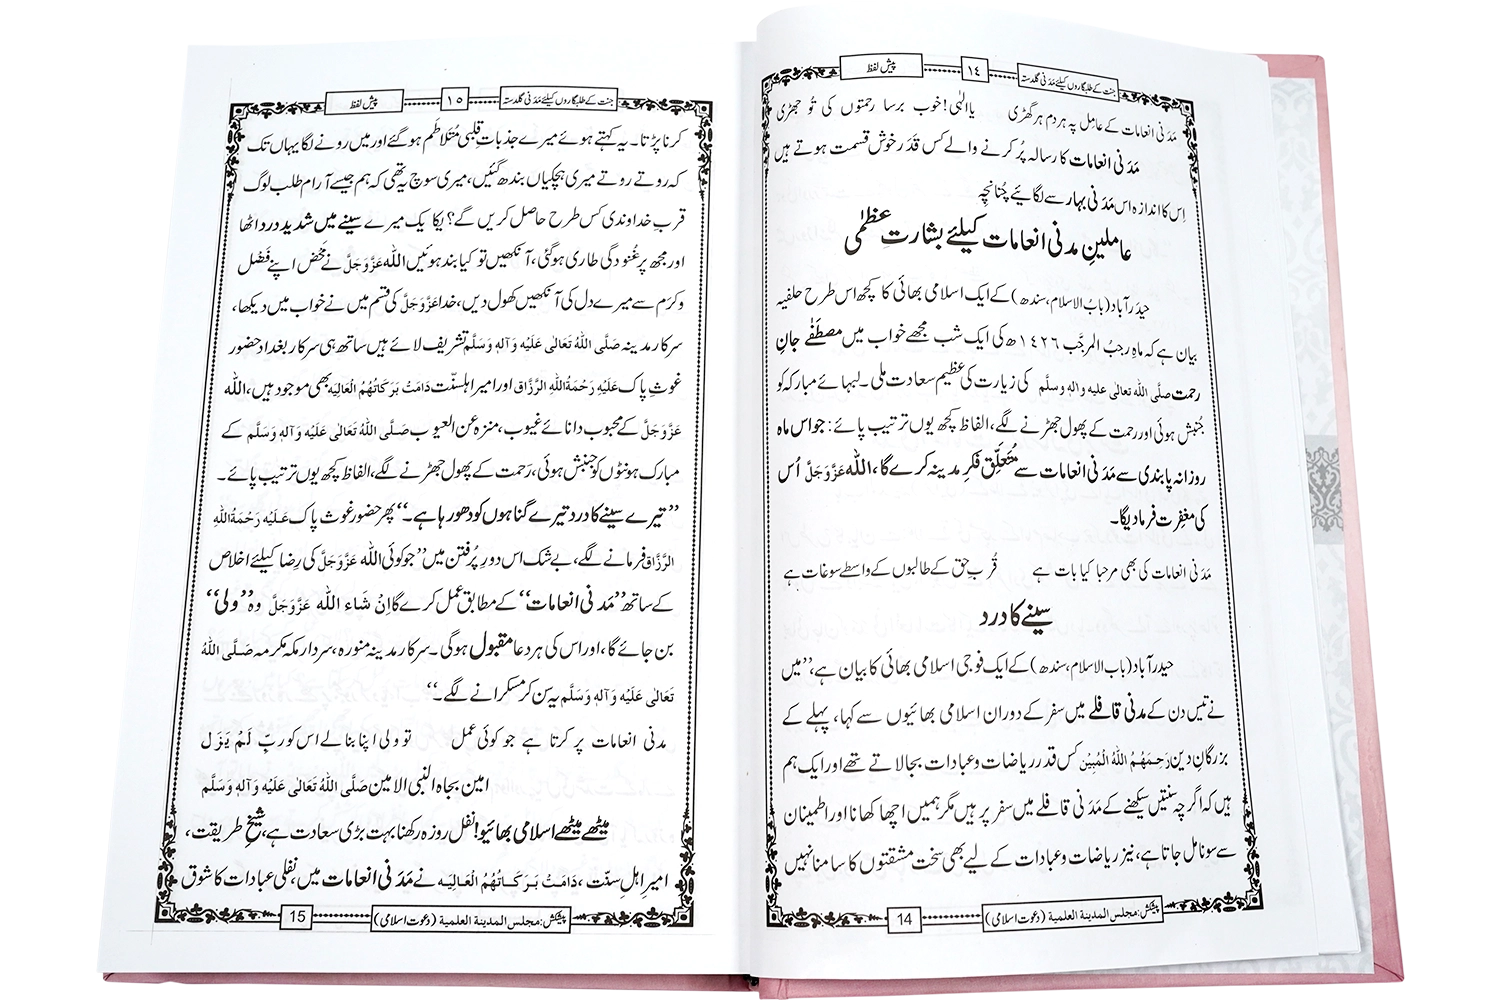 جنت کے طلبگاروں کیلئے مَدَنی گلدستہ ۱٤ پیش لفظ
مَدَنی انعامات کے عامل پہ ہر دم ہر گھڑی یاالٰہی! خوب برسا رحمتوں کی تُو جھڑی
مَدَنی انعامات کا رسالہ پُر کرنے والے کس قَدَر خوش قسمت ہوتے ہیں
اِس کا اندازہ اس مَدَنی بہار سے لگائیے چُنانچِہ
عاملینِ مدنی انعامات کیلئے بشارتِ عظمٰی
حیدَرآباد (بابُ الاسلام، سندھ) کے ایک اسلامی بھائی کا کچھ اس طرح حلفیہ
بیان ہے کہ ماہِ رجبُ المرجَّب ۱٤۲٦ھ کی ایک شب مجھے خواب میں مصطَفٰے جانِ
رحمت صلَّی اللہ تعالٰی علیہ واٰلہٖ وسلَّم کی زیارت کی عظیم سعادت ملی۔ لبہائے مبارکہ کو
جُنبش ہوئی اور رحمت کے پھول جھڑنے لگے، الفاظ کچھ یوں ترتیب پائے: جو اس ماہ
روزانہ پابندی سے مَدَنی انعامات سے مُتَعَلِّق فکرِ مدینہ کرے گا، اللہ عَزَّوَجَلَّ اُس
کی مغفِرت فرما دیگا۔
مَدَنی انعامات کی بھی مرحبا کیا بات ہے قُربِ حق کے طالبوں کے واسطے سوغات ہے
سینے کا درد
حیدرآباد (باب الاسلام، سندھ) کے ایک فوجی اسلامی بھائی کا بیان ہے، ”میں
نے تیس دن کے مدنی قافلے میں سفر کے دوران اسلامی بھائیوں سے کہا، پہلے کے
بزرگانِ دین رَحِمَہُمُ اللہُ الْمُبِیْن کس قدر ریاضات و عبادات بجا لاتے تھے اور ایک ہم
ہیں کہ اگرچہ سنتیں سیکھنے کے مَدَنی قافلے میں سفر پر ہیں مگر ہمیں اچھا کھانا اور اطمینان
سے سونا مل جاتا ہے، نیز ریاضات و عبادات کے لیے بھی سخت مشقتوں کا سامنا نہیں
پیشکش: مجلس المدینۃ العلمیۃ (دعوتِ اسلامی) 14
جنت کے طلبگاروں کیلئے مَدَنی گلدستہ ۱٥ پیش لفظ
کرنا پڑتا۔ یہ کہتے ہوئے میرے جذباتِ قلبی مُتَلاطم ہو گئے اور میں رونے لگا یہاں تک
کہ روتے روتے میری ہچکیاں بندھ گئیں، میری سوچ یہ تھی کہ ہم جیسے آرام طلب لوگ
قربِ خداوندی کس طرح حاصل کریں گے؟ یکایک میرے سینے میں شدید درد اٹھا
اور مجھ پر غُنودگی طاری ہوگئی، آنکھیں تو کیا بند ہوئیں اللہ عَزَّوَجَلَّ نے محض اپنے فَضل
وکرَم سے میرے دل کی آنکھیں کھول دیں، خدا عَزَّوَجَلَّ کی قسم میں نے خواب میں دیکھا،
سرکارِ مدینہ صَلَّی اللہُ تَعَالٰی عَلَیْہِ وَاٰلِہٖ وَسَلَّم تشریف لائے ہیں ساتھ ہی سرکارِ بغداد حضور
غوثِ پاک عَلَیْہِ رَحْمَۃُاللہِ الرَّزَّاق اور امیرِ اہلسنّت دَامَتْ بَرَکَاتُہُمُ الْعَالِیَہ بھی موجود ہیں، اللہ
عَزَّوَجَلَّ کے محبوب دانائے غیوب، منزہ عن العیوب صَلَّی اللہُ تَعَالٰی عَلَیْہِ وَاٰلِہٖ وَسَلَّم کے
مبارک ہونٹوں کو جنبش ہوئی، رَحمت کے پھول جھڑنے لگے، الفاظ کچھ یوں ترتیب پائے۔
”تیرے سینے کا درد تیرے گناہوں کو دھو رہا ہے۔“ پھر حضور غوثِ پاک عَلَیْہِ رَحْمَۃُاللہِ
الرَّزَّاق فرمانے لگے، بے شک اس دورِ پُر فتن میں ”جو کوئی اللہ عَزَّوَجَلَّ کی رضا کیلئے اخلاص
کے ساتھ ”مَدَنی انعامات“ کے مطابق عمل کرے گا اِنْ شَاءَ اللہ عَزَّوَجَلَّ وہ ”ولی“
بن جائے گا، اور اس کی ہر دعا مقبول ہوگی۔ سرکارِ مدینہ منورہ، سردارِ مکہ مکرمہ صَلَّی اللہُ
تَعَالٰی عَلَیْہِ وَاٰلِہٖ وَسَلَّم یہ سن کر مسکرانے لگے۔“
مدنی انعامات پر کرتا ہے جو کوئی عمل تو ولی اپنا بنا لے اس کو ربِّ لَمْ یَزَل
امین بجاہ النبی الامین صَلَّی اللہُ تَعَالٰی عَلَیْہِ وَاٰلِہٖ وَسَلَّم
میٹھے میٹھے اسلامی بھائیو! نفل روزہ رکھنا بہت بڑی سعادت ہے، شیخِ طریقت،
امیرِ اہلِ سنّت، دَامَتْ بَرَکَاتُہُمُ الْعَالِیَہ نے مَدَنی انعامات میں، نفلی عبادات کا شوق
پیشکش: مجلس المدینۃ العلمیۃ (دعوتِ اسلامی) 15